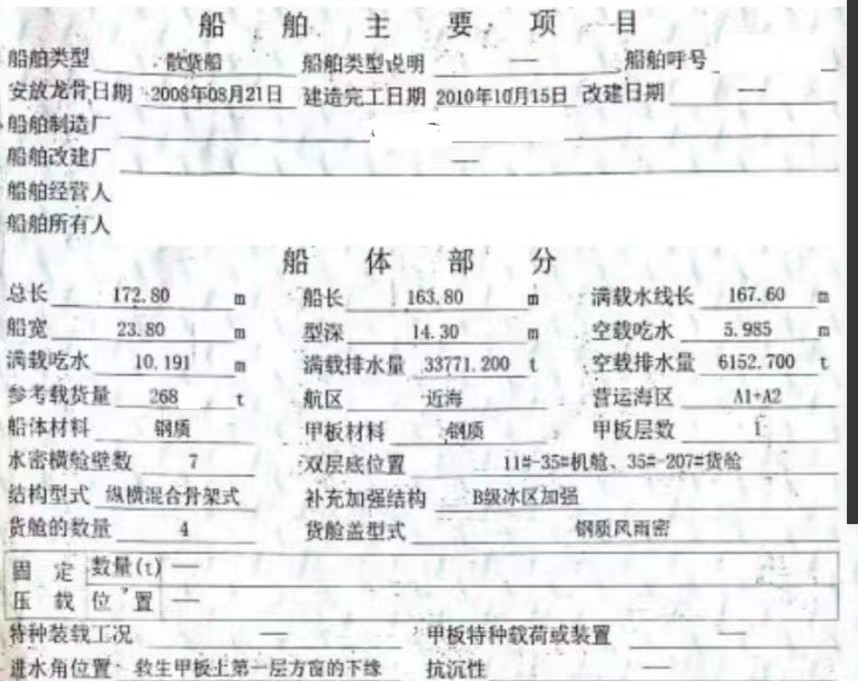 船舶主要项目
船舶类型 散货船 船舶类型说明 — 船舶呼号
安放龙骨日期 2008年08月21日 建造完工日期 2010年10月15日 改建日期 —
船舶制造厂
船舶改建厂 —
船舶经营人
船舶所有人
船体部分
总长 172.80 m 船长 163.80 m 满载水线长 167.60 m
船宽 23.80 m 型深 14.30 m 空载吃水 5.985 m
满载吃水 10.191 m 满载排水量 33771.200 t 空载排水量 6152.700 t
参考载货量 268 t 航区 近海 营运海区 A1+A2
船体材料 钢质 甲板材料 钢质 甲板层数 1
水密横舱壁数 7 双层底位置 11#-35#机舱、35#-207#货舱
结构型式 纵横混合骨架式 补充加强结构 B级冰区加强
货舱的数量 4 货舱盖型式 钢质风雨密
固定 数量(t) —
压载 位置 —
特种装载工况 — 甲板特种载荷或装置 —
进水角位置 救生甲板上第一层方窗的下缘 抗沉性 —